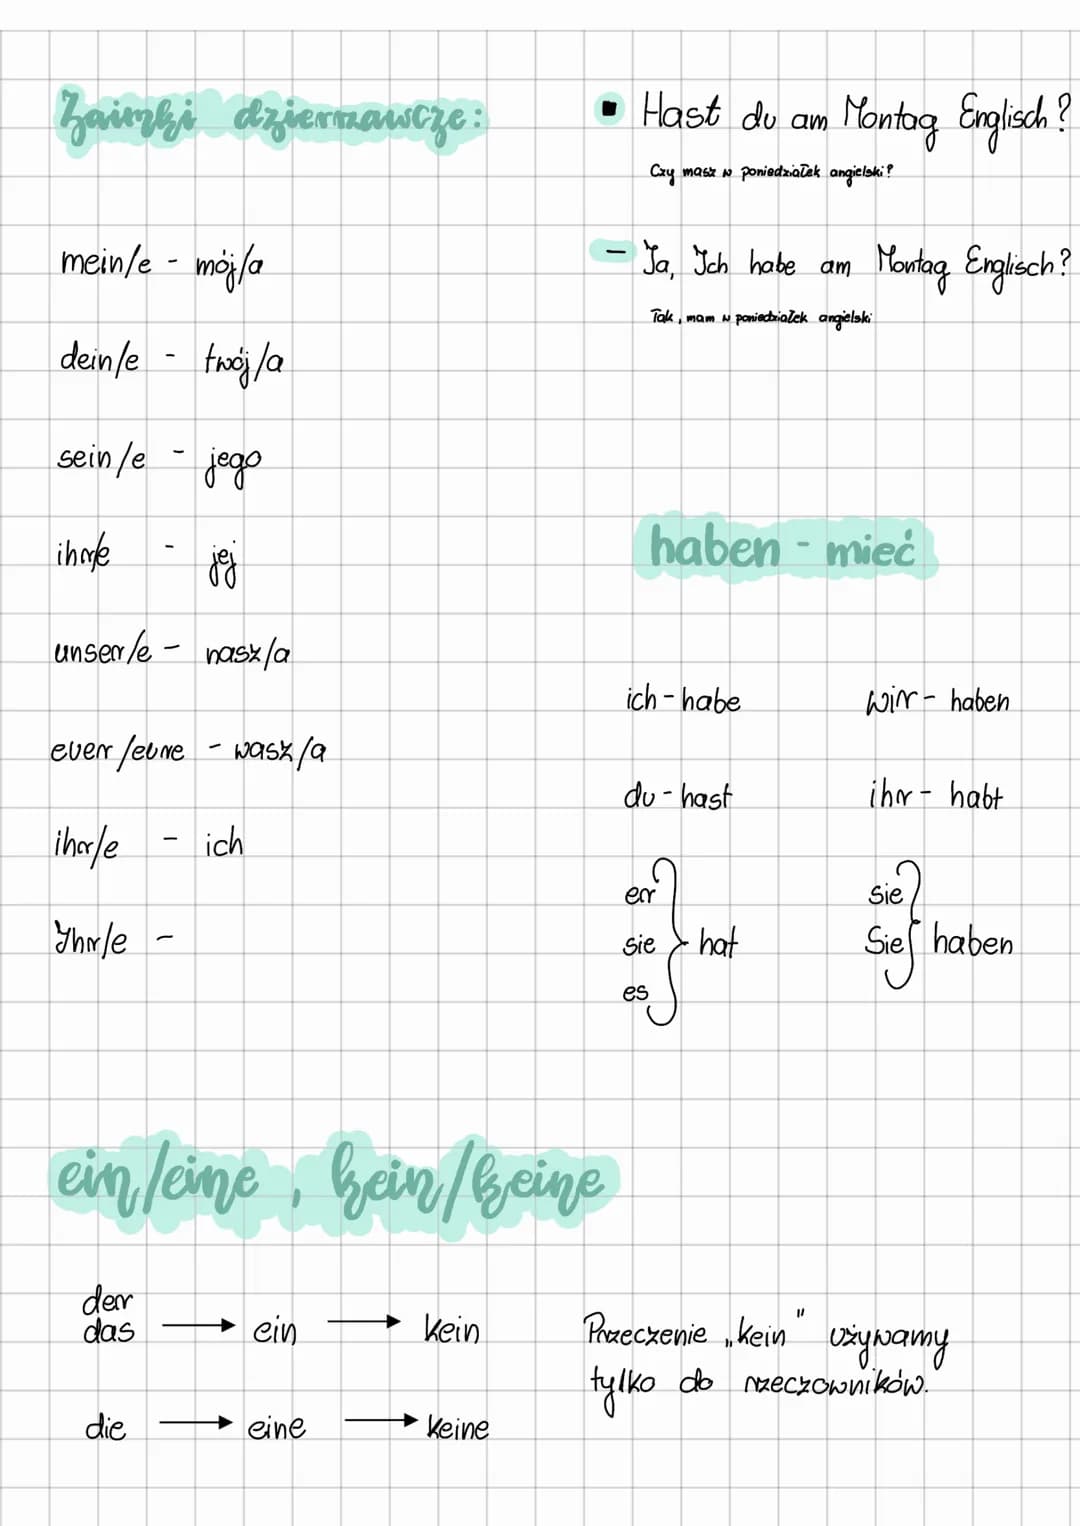 Zaimki dzierżawcze:
mein/e - mój/a
dein/e - twój/a
sein/e - jego
ihr/e - jej
unser/e - nasz/a
euer/eure - wasz/a
ihr/e - ich
Ihr/e -
▪ Hast du am Montag Englisch?
Czy masz w poniedziałek angielski?
- Ja, Ich habe am Montag Englisch?
Tak, mam w poniedziałek angielski
haben - mieć
ich - habe wir - haben
du - hast ihr - habt
er sie
sie } hat Sie } haben
es
ein/eine, kein/keine
der
das → ein → kein
die → eine → keine
Przeczenie „kein" używamy
tylko do rzeczowników.